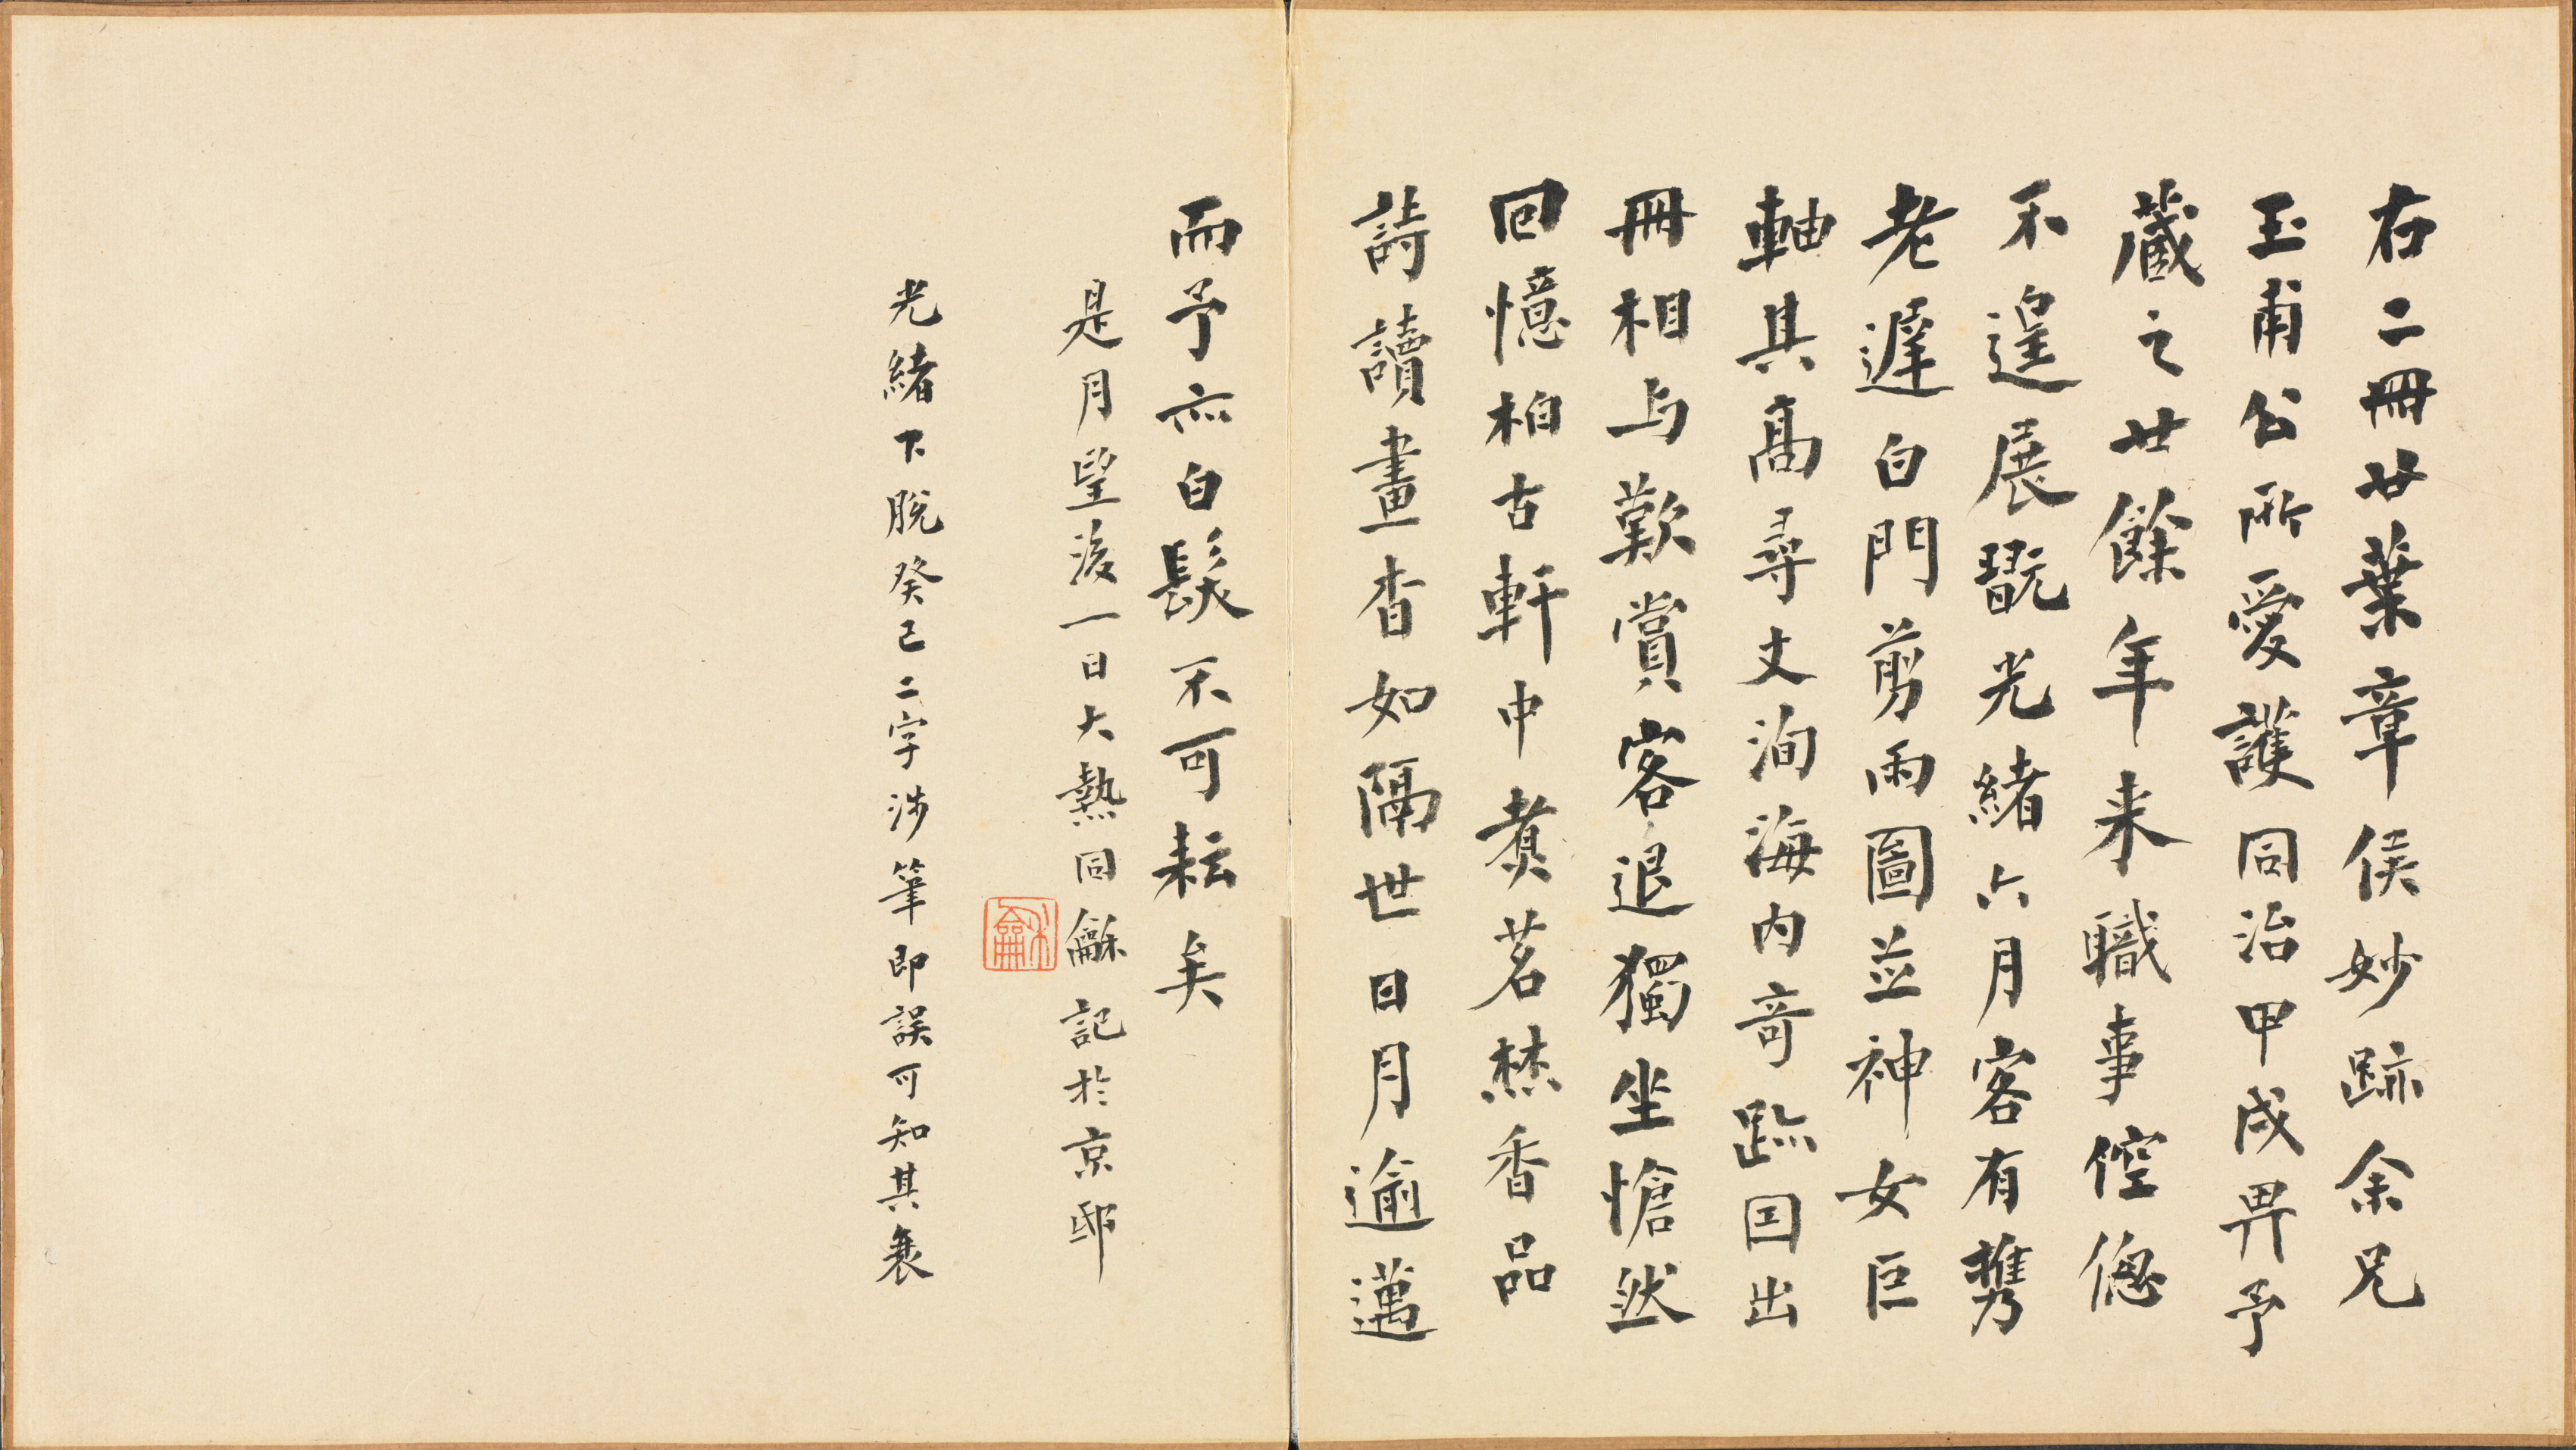 右二冊廿葉章侯妙跡余兄
玉甫公所愛護同治甲戌畀予
藏之廿餘年来職事倥傯
不遑展翫光緒六月客有携
老遲白門剪雨圖並神女巨
軸其高尋丈洵海内奇跡因出
冊相与歎賞客退獨坐愴然
回憶柏古軒中煑茗焚香品
詩讀畫杳如隔世日月逾邁
而予亦白髮不可耘矣
是月望後一日大熱同龢記於京邸
龢
光緒下脫癸巳二字涉筆即誤可知其衰